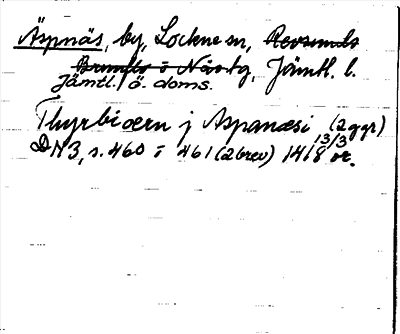 Äspnäs, by, Lockne sn, Revsunds
Brunflo o Näs tg, Jämtl. l.
Jämtl. ö. doms.
Thyrbiærn j Aspanæsi (2 ggr)
DN 3, s. 460 o 461 (2 brev) 1418 13/3 or.